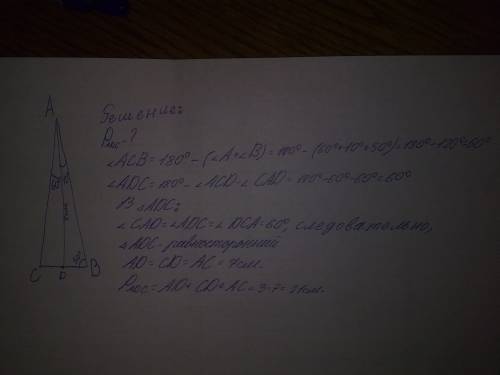 A
Решение:
Pадс-?
∠ACB = 180° - (∠A+∠B) = 180° - (60°+10°+50°) = 180°-120°=60°
∠ADC = 180° - ∠ACD - ∠CAD = 180°-60°-60°=60°
В △ADC:
∠CAD = ∠ADC = ∠DCA = 60°, следовательно,
△ADC - равносторонний
AD = CD = AC = 7см.
Pадс = AD + CD + AC = 3·7 = 21см.
C D B